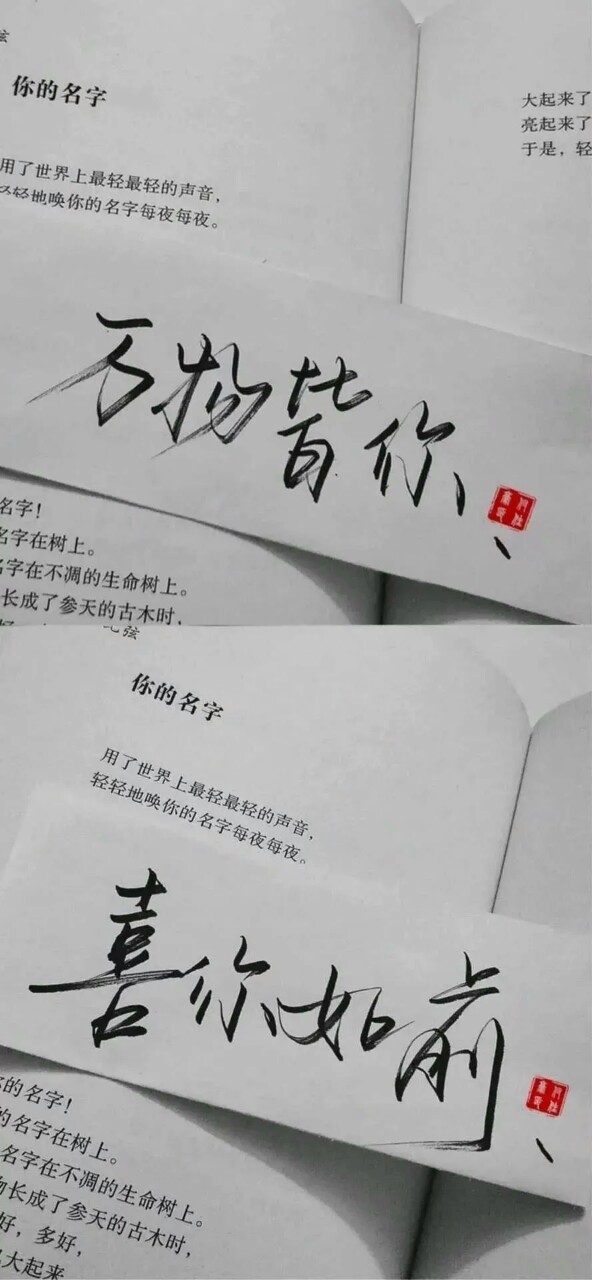 弦
你的名字
用了世界上最轻最轻的声音，
轻轻地唤你的名字每夜每夜。
大起来了
亮起来了
于是，轻
万物皆你、
名字！
名字在树上。
名字在不凋的生命树上。
长成了参天的古木时，
弦
你的名字
用了世界上最轻最轻的声音，
轻轻地唤你的名字每夜每夜。
喜你如前、
你的名字！
的名字在树上。
名字在不凋的生命树上。
长成了参天的古木时，
好，多好，
大起来